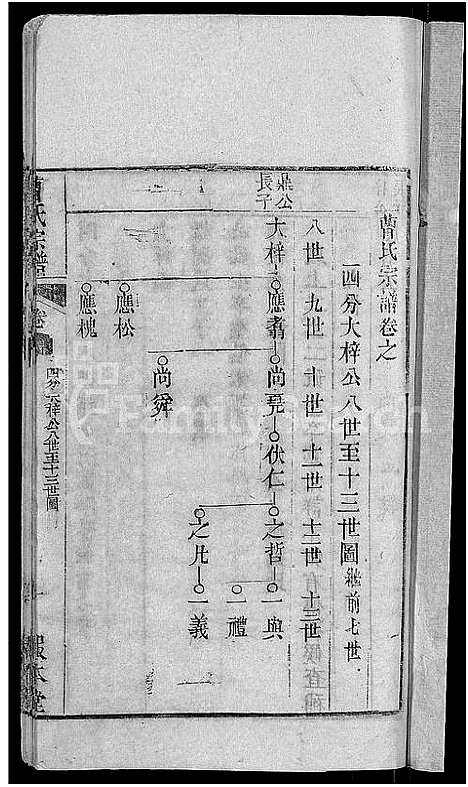 曹氏宗譜卷之
四分大梓公八世至十三世圖 繼前七世
八世 九世 十世 十一世 十二世 十三世
鼎公長子
大梓 應翥 尚堯 伏仁 之哲 一與
一禮
之凡 一義
尚舜
應松
應槐
曹氏宗譜 卷
四分大梓公八世至十三世圖
本堂
FamilySearch